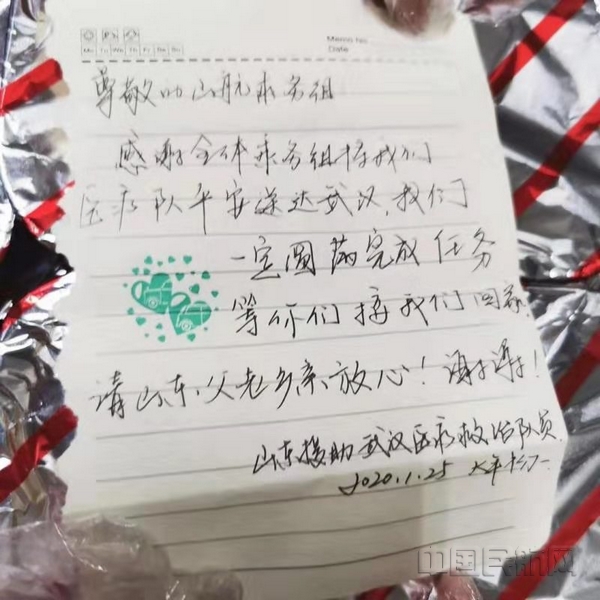 Memo No.
Date
Mo Tu We Th Fr Sa Su
尊敬的山航乘务组
感谢全体乘务组将我们
医疗队平安送达武汉,我们
一定圆满完成任务
等你们接我们回家.
请山东父老乡亲放心！谢谢！
山东援助武汉医疗救治队员.
2020.1.25 大年初一.
中国民航网